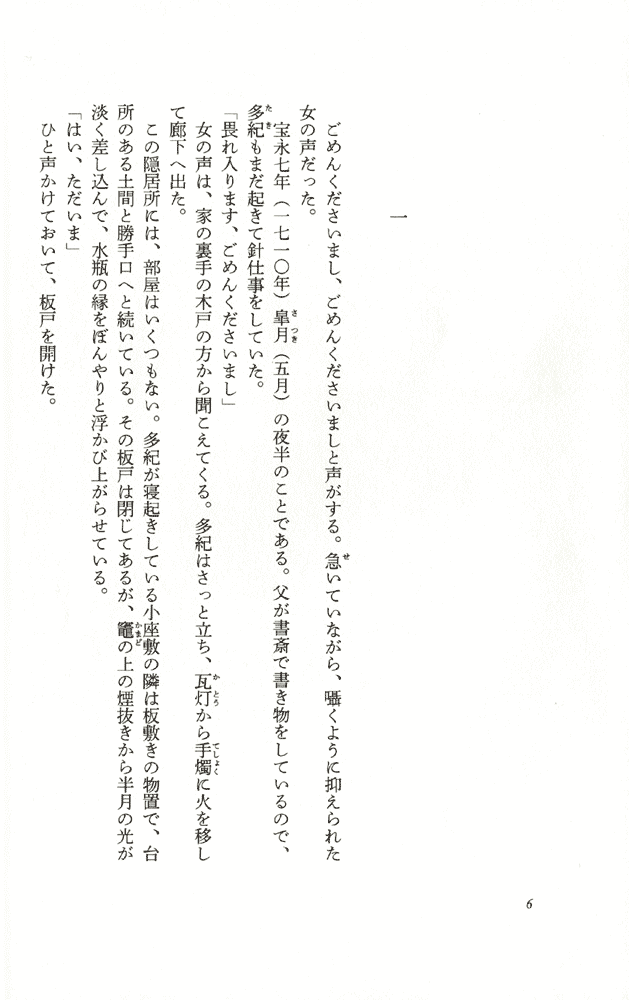 一
ごめんくださいまし、ごめんくださいましと声がする。急いていながら、囁くように抑えられた
女の声だった。
宝永七年（一七一〇年）皐月（五月）の夜半のことである。父が書斎で書き物をしているので、
多紀もまだ起きて針仕事をしていた。
「畏れ入ります、ごめんくださいまし」
女の声は、家の裏手の木戸の方から聞こえてくる。多紀はさっと立ち、瓦灯から手燭に火を移し
て廊下へ出た。
この隠居所には、部屋はいくつもない。多紀が寝起きしている小座敷の隣は板敷きの物置で、台
所のある土間と勝手口へと続いている。その板戸は閉じてあるが、竈の上の煙抜きから半月の光が
淡く差し込んで、水瓶の縁をぼんやりと浮かび上がらせている。
「はい、ただいま」
ひと声かけておいて、板戸を開けた。
6